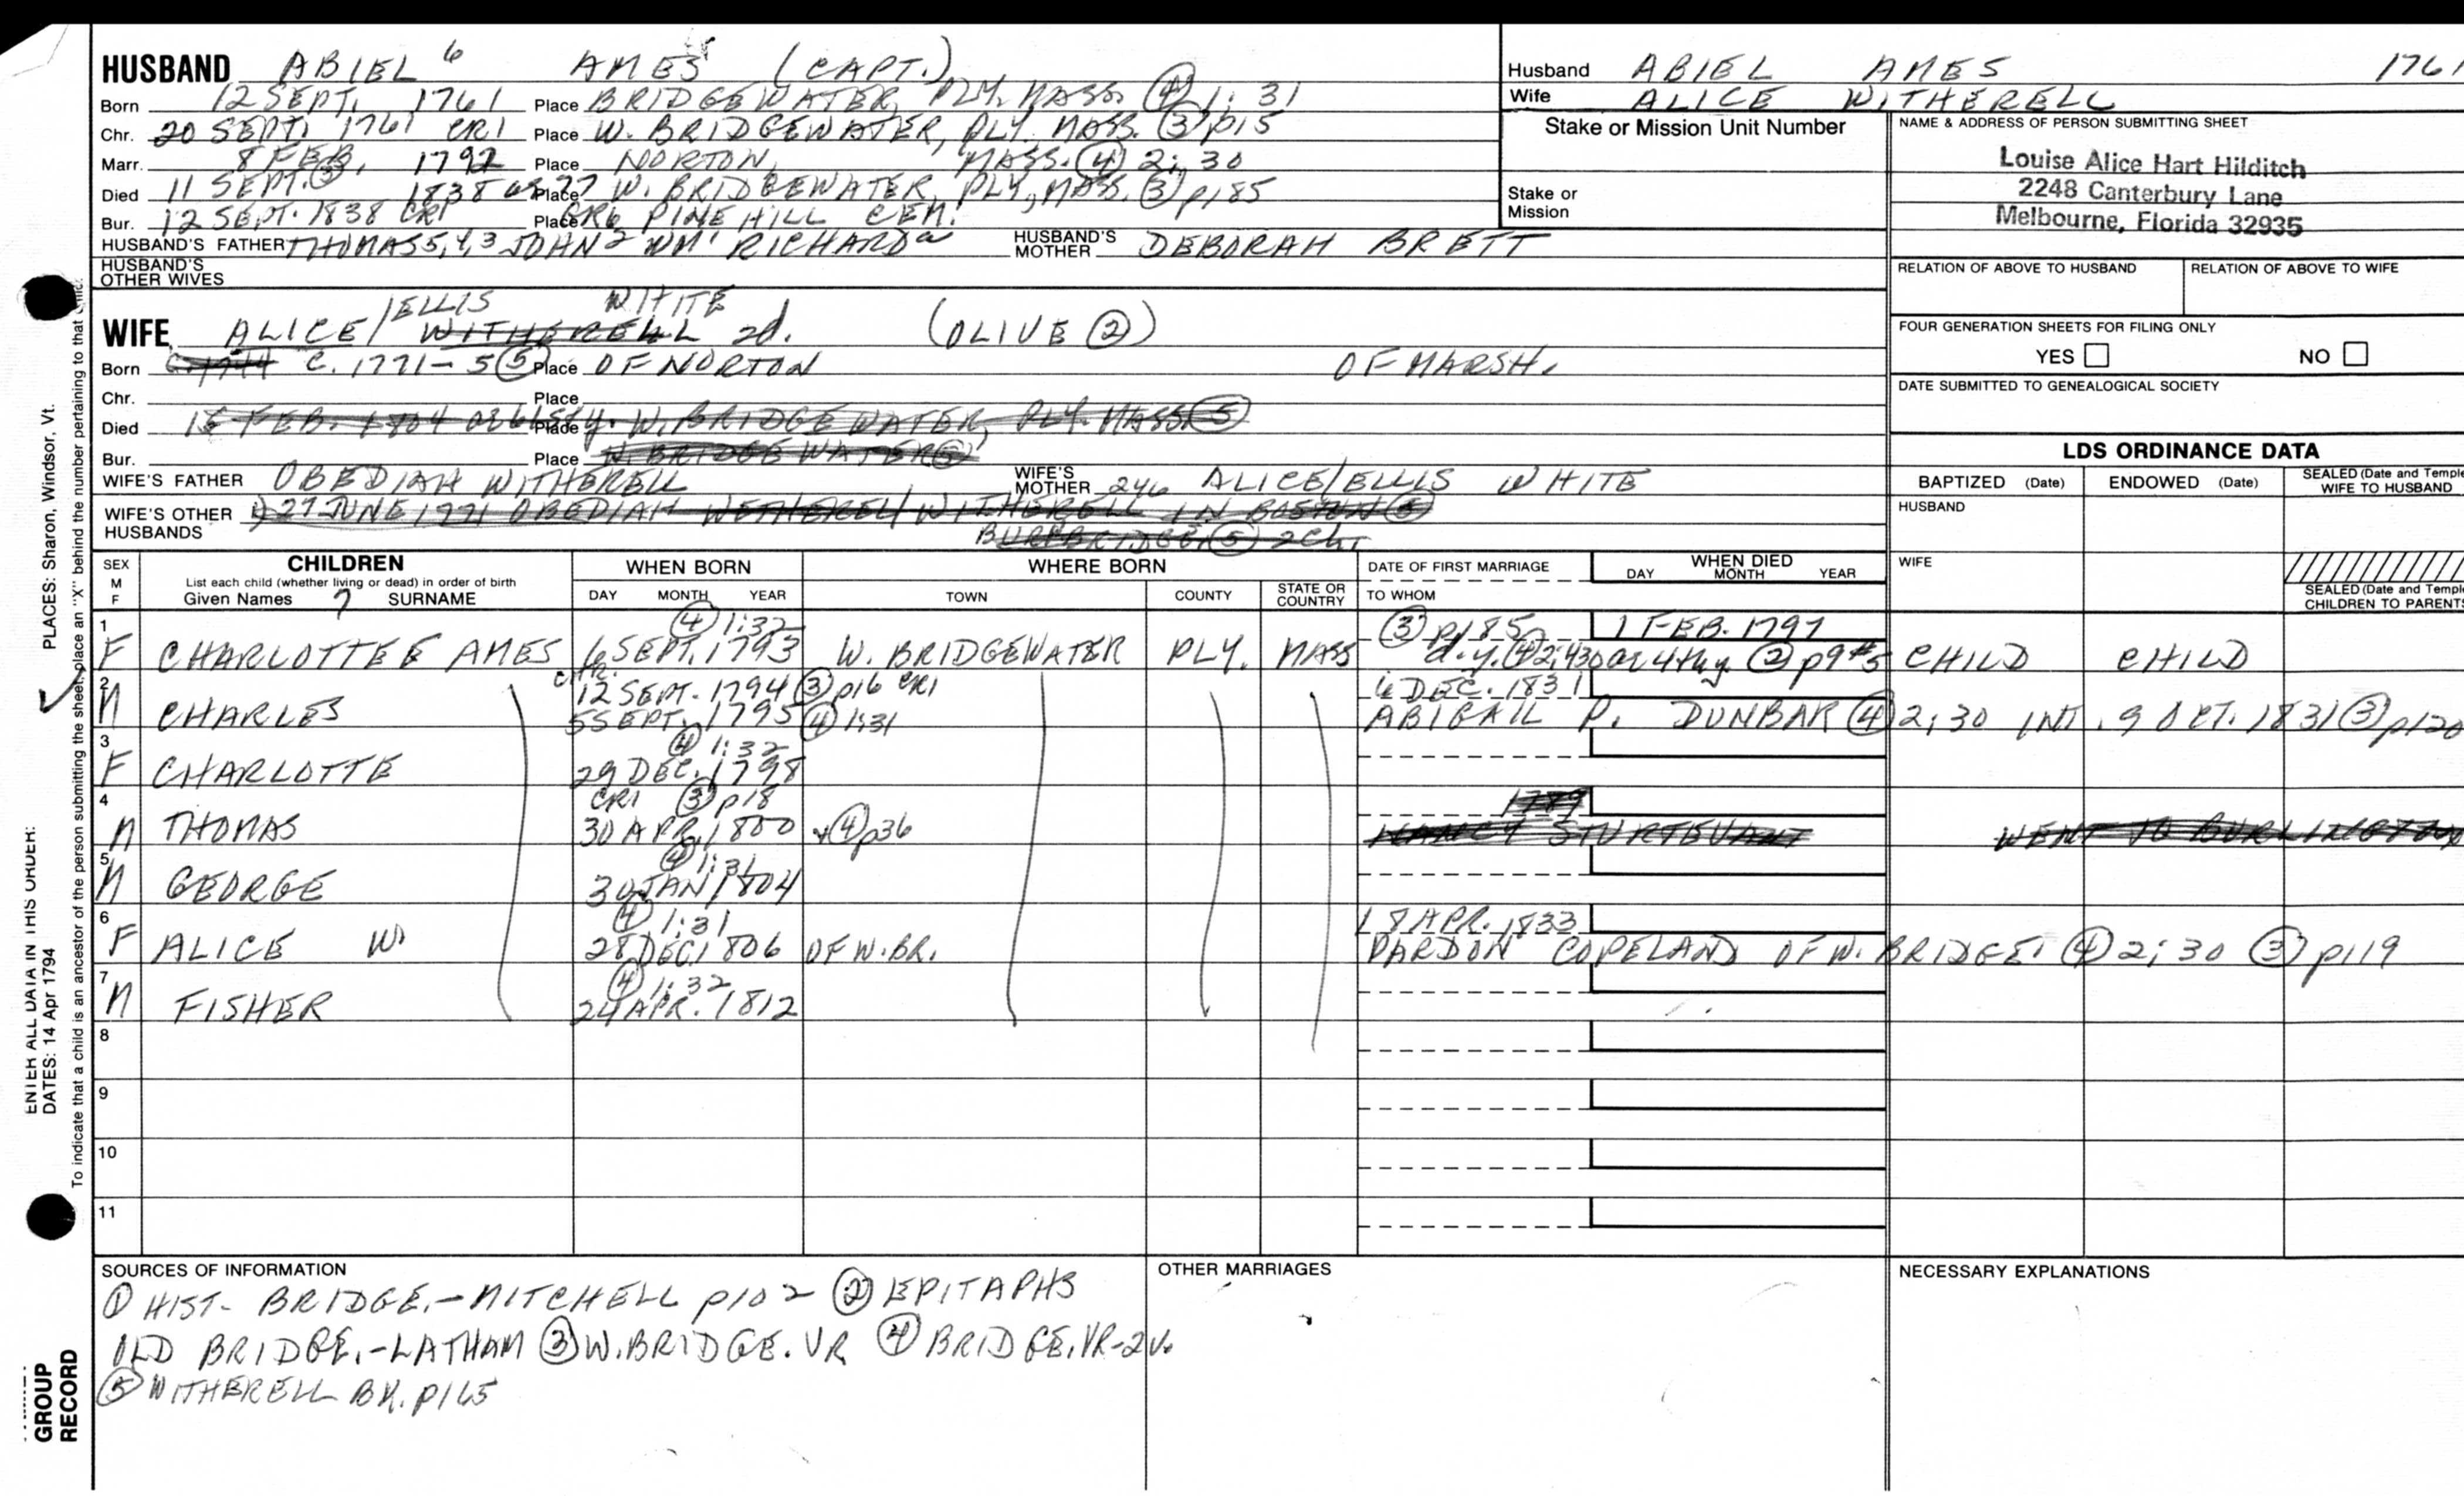 HUSBAND ABIEL 6 AMES (CAPT.)
Born 12 SEPT. 1761 Place BRIDGEWATER, PLY. MASS. ④ 1: 31
Chr. 20 SEPT. 1761 CR1 Place W. BRIDGEWATER, PLY. MASS. ③ p15
Marr. 8 FEB. 1792 Place NORTON, MASS. ④ 2: 30
Died 11 SEPT. ③ 1838 ae 77 Place W. BRIDGEWATER, PLY, MASS. ③ p185
Bur. 12 SEPT. 1838 CR1 Place GR6 PINE HILL CEM.
HUSBAND'S FATHER THOMAS 5, 4, 3 JOHN 2 WM 1 RICHARD a HUSBAND'S MOTHER DEBORAH BRETT
HUSBAND'S OTHER WIVES
Husband ABIEL AMES 1761
Wife ALICE WITHERELL
Stake or Mission Unit Number
Stake or Mission
NAME & ADDRESS OF PERSON SUBMITTING SHEET
Louise Alice Hart Hilditch
2248 Canterbury Lane
Melbourne, Florida 32935
RELATION OF ABOVE TO HUSBAND RELATION OF ABOVE TO WIFE
FOUR GENERATION SHEETS FOR FILING ONLY
YES NO
DATE SUBMITTED TO GENEALOGICAL SOCIETY
/ELLIS WHITE
WIFE ALICE/ WITHERELL 2d. (OLIVE ②)
Born C. 1771-5 ⑤ Place OF NORTON OF MARSH.
Chr. Place
Died FEB. 1804 Place W. BRIDGEWATER, PLY. MASS. ⑤
Bur. Place N. BRIDGEWATER ⑤
WIFE'S FATHER OBEDIAH WITHERELL WIFE'S MOTHER 246 ALICE/ELLIS WHITE
WIFE'S OTHER HUSBANDS 1) 27 JUNE 1771 OBEDIAH WETHEREL/WITHERELL IN BOSTON ⑤
⑤ 2 Ch.
LDS ORDINANCE DATA
BAPTIZED (Date) ENDOWED (Date) SEALED (Date and Temple WIFE TO HUSBAND
HUSBAND
WIFE
SEALED (Date and Temple CHILDREN TO PARENTS
SEX M F CHILDREN List each child (whether living or dead) in order of birth Given Names ? SURNAME
WHEN BORN DAY MONTH YEAR
WHERE BORN TOWN COUNTY STATE OR COUNTRY
DATE OF FIRST MARRIAGE TO WHOM
WHEN DIED DAY MONTH YEAR
1 ④ 1:32 ③ p185 1 FEB. 1797
F CHARLOTTE E AMES 6 SEPT. 1793 W. BRIDGEWATER PLY. MASS d.y. ④ 2: 430 ae 4thy. ② p9 #5 CHILD CHILD
2 CHR. 12 SEPT. 1794 ③ p16 CR1 6 DEC. 1831
M CHARLES 5 SEPT. 1795 ④ 1:31 ABIGAIL P. DUNBAR ④ 2; 30 INT. 9 OCT. 1831 ③ p120
3 ④ 1:32
F CHARLOTTE 29 DEC. 1798
4 CR1 ③ p18 1789
M THOMAS 30 APR. 1800 + ④ p36 NANCY STURTEVANT WENT TO BURLINGTON
5 ④ 1:31
M GEORGE 30 JAN 1804
6 ④ 1:31 18 APR. 1833
F ALICE W. 28 DEC. 1806 OF W. BR. PARDON COPELAND OF W. BRIDGE. ④ 2; 30 ③ p119
7 ④ 1:32
M FISHER 24 APR. 1812
8
9
10
11
SOURCES OF INFORMATION
① HIST- BRIDGE.-MITCHELL p102 ② EPITAPHS
OLD BRIDGE.-LATHAM ③ W. BRIDGE. VR ④ BRIDGE. VR-2V.
⑤ WITHERELL BK. p165
OTHER MARRIAGES
NECESSARY EXPLANATIONS
PLACES: Sharon, Windsor, Vt.
To indicate that a child is an ancestor of the person submitting the sheet, place an "X" behind the number pertaining to that child.
ENTER ALL DATA IN THIS ORDER:
DATES: 14 Apr 1794
GROUP
RECORD